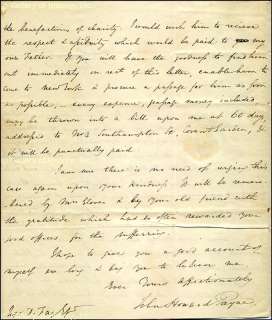 the benefactions of charity. I would wish him to receive
the respect & civility which would be paid to my
own Father. If you will have the goodness to find him
out immediately on rect of this letter, enable him to
come to New York & procure a passage for him as soon
as possible, — every expense, passage money included
may be thrown into a bill upon me at 60 days,
addressed to No 3 Southampton St, Covent Garden, &
it will be punctually paid.
I am sure there is no need of urging this
case again upon your kindness. It will be remem-
bered by Mrs Glover & by your old friend with
the gratitude which has so often rewarded your
good offices for the suffering.
I hope to give you a good account of
myself ere long & beg you to believe me
Ever Yours Affectionately
John Howard Payne